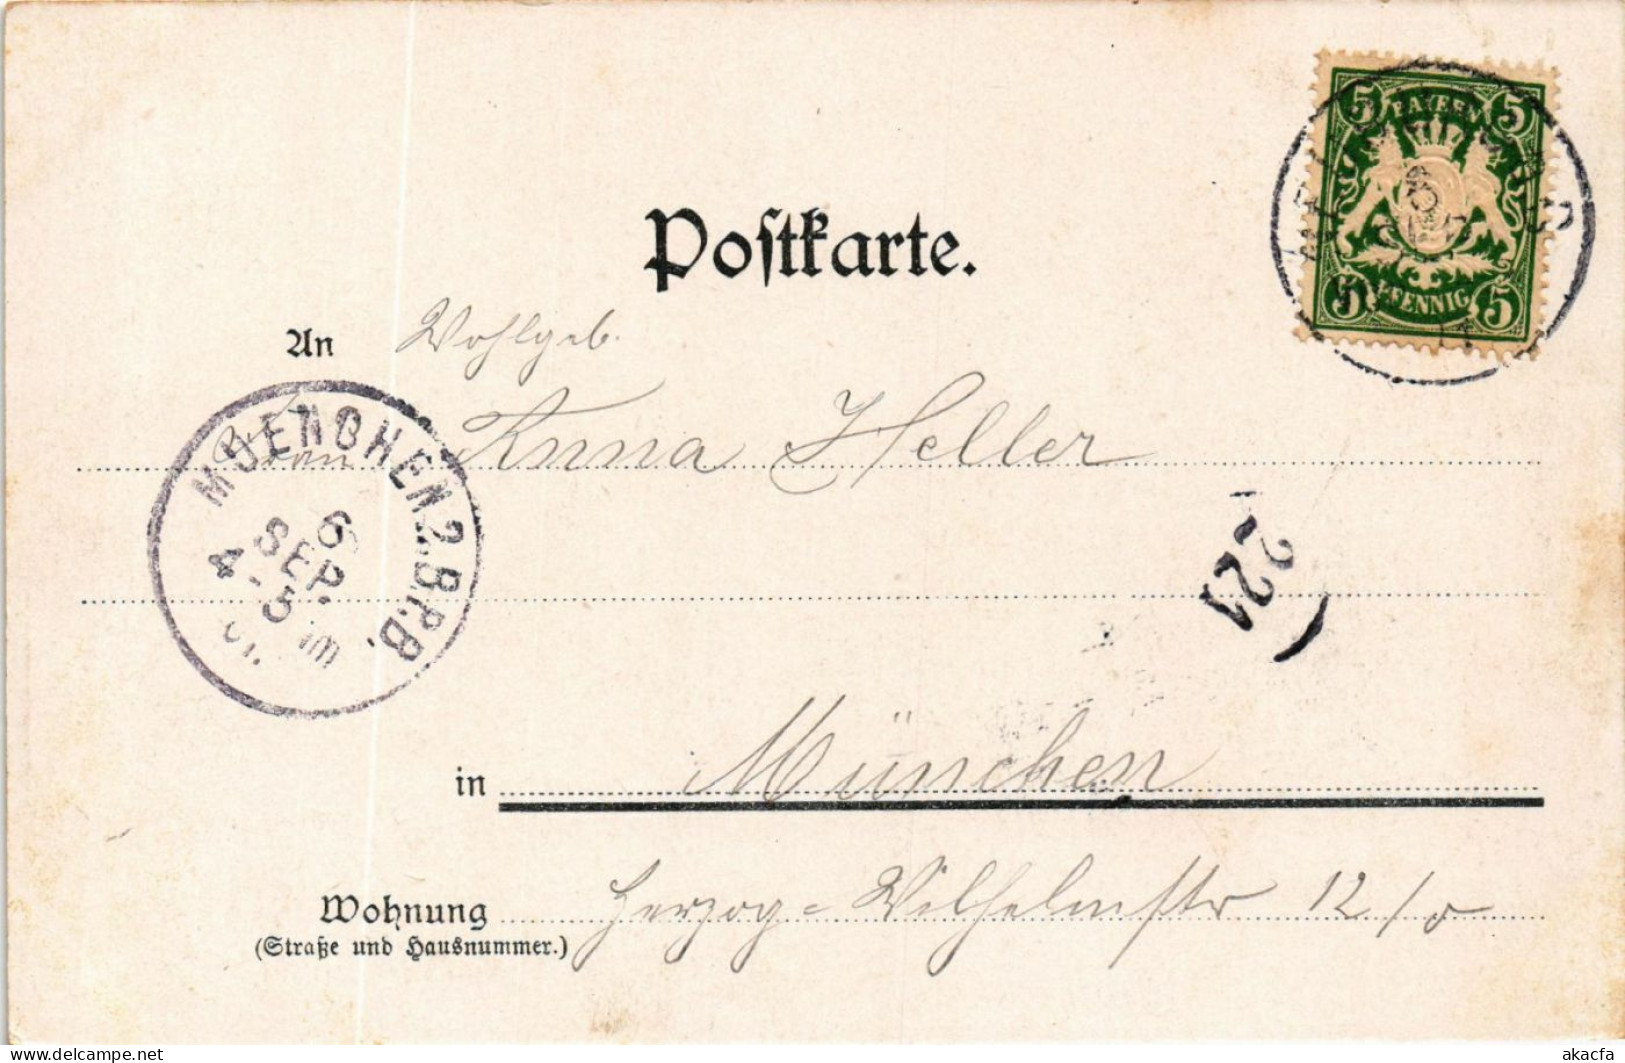 5 BAYERN 5
5 PFENNIG 5
Postkarte.
An Wohlgeb.
Frau Anna Heller
MUENCHEN 2.B.P.B.
6
SEP.
221
in München
Wohnung Herzog-Wilhelmstr 12/0
(Straße und Hausnummer.)
delcampe.net
akacfa